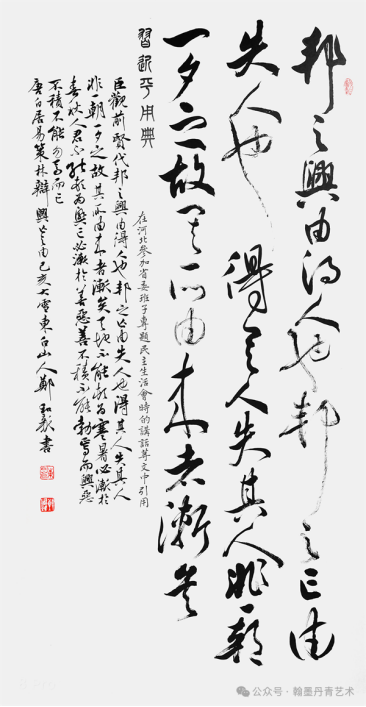 邦之興由得人也邦之亡由
失人也得其人失其人非一朝
一夕之故其所由來者漸矣
習近平用典
在河北參加省委班子專題民主生活會時的講話等文中引用
臣觀前賢代邦之興由得人也邦之亡由失人也得其人失其人
非一朝一夕之故其所由來者漸矣天地不能頓為寒暑必漸於
春秋人君不能頓為興亡必漸於善惡善不積不能勃焉而興惡
不積不能忽焉而亡
唐白居易策林辯興亡之由己亥大雪東白山人鄭
書
公众号·翰墨丹青艺术